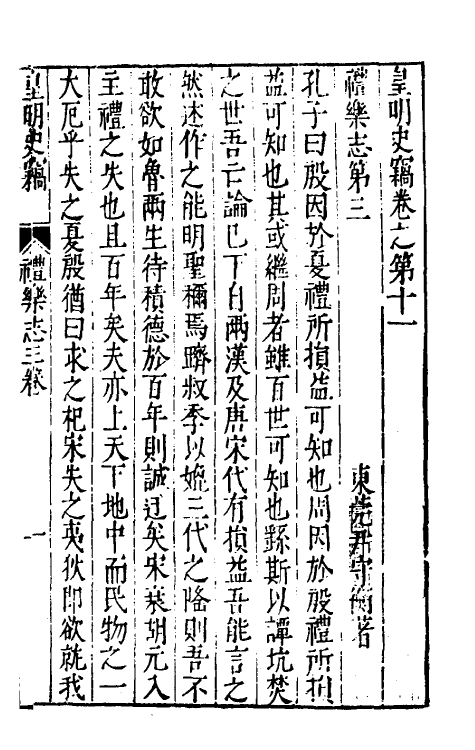 皇明史竊卷之第十一
禮樂志第三
東莞尹守衡著
孔子曰殷因於夏禮所損益可知也周因於殷禮所損
益可知也其或繼周者雖百世可知也繇斯以譚坑焚
之世吾亡論巳下自兩漢及唐宋代有損益吾能言之
然述作之能明聖禰焉躋叔季以媲三代之隆則吾不
敢欲如魯兩生待積德於百年則誠迂矣宋衰胡元入
主禮之失也且百年矣夫亦上天下地中而民物之一
大厄乎失之夏殷猶曰求之杞宋失之夷狄即欲就我
皇明史竊
禮樂志三卷
一